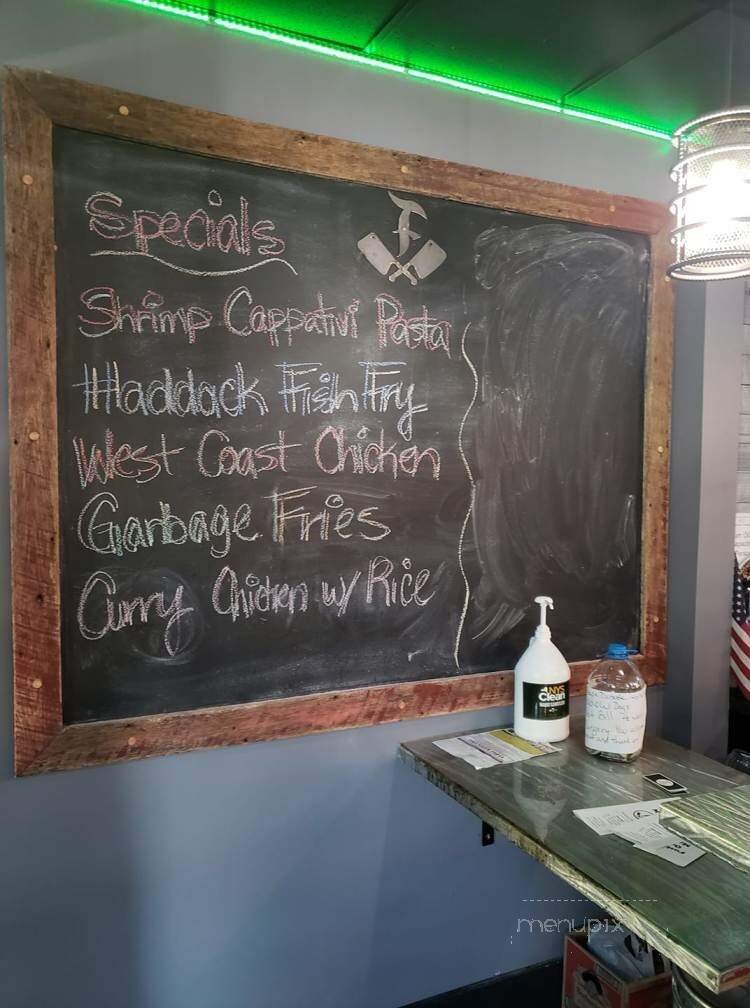 Specials
F
Shrimp Cappativi Pasta
Haddock Fish Fry
West Coast Chicken
Garbage Fries
Curry Chicken w/ Rice
NYS
Clean
menupix